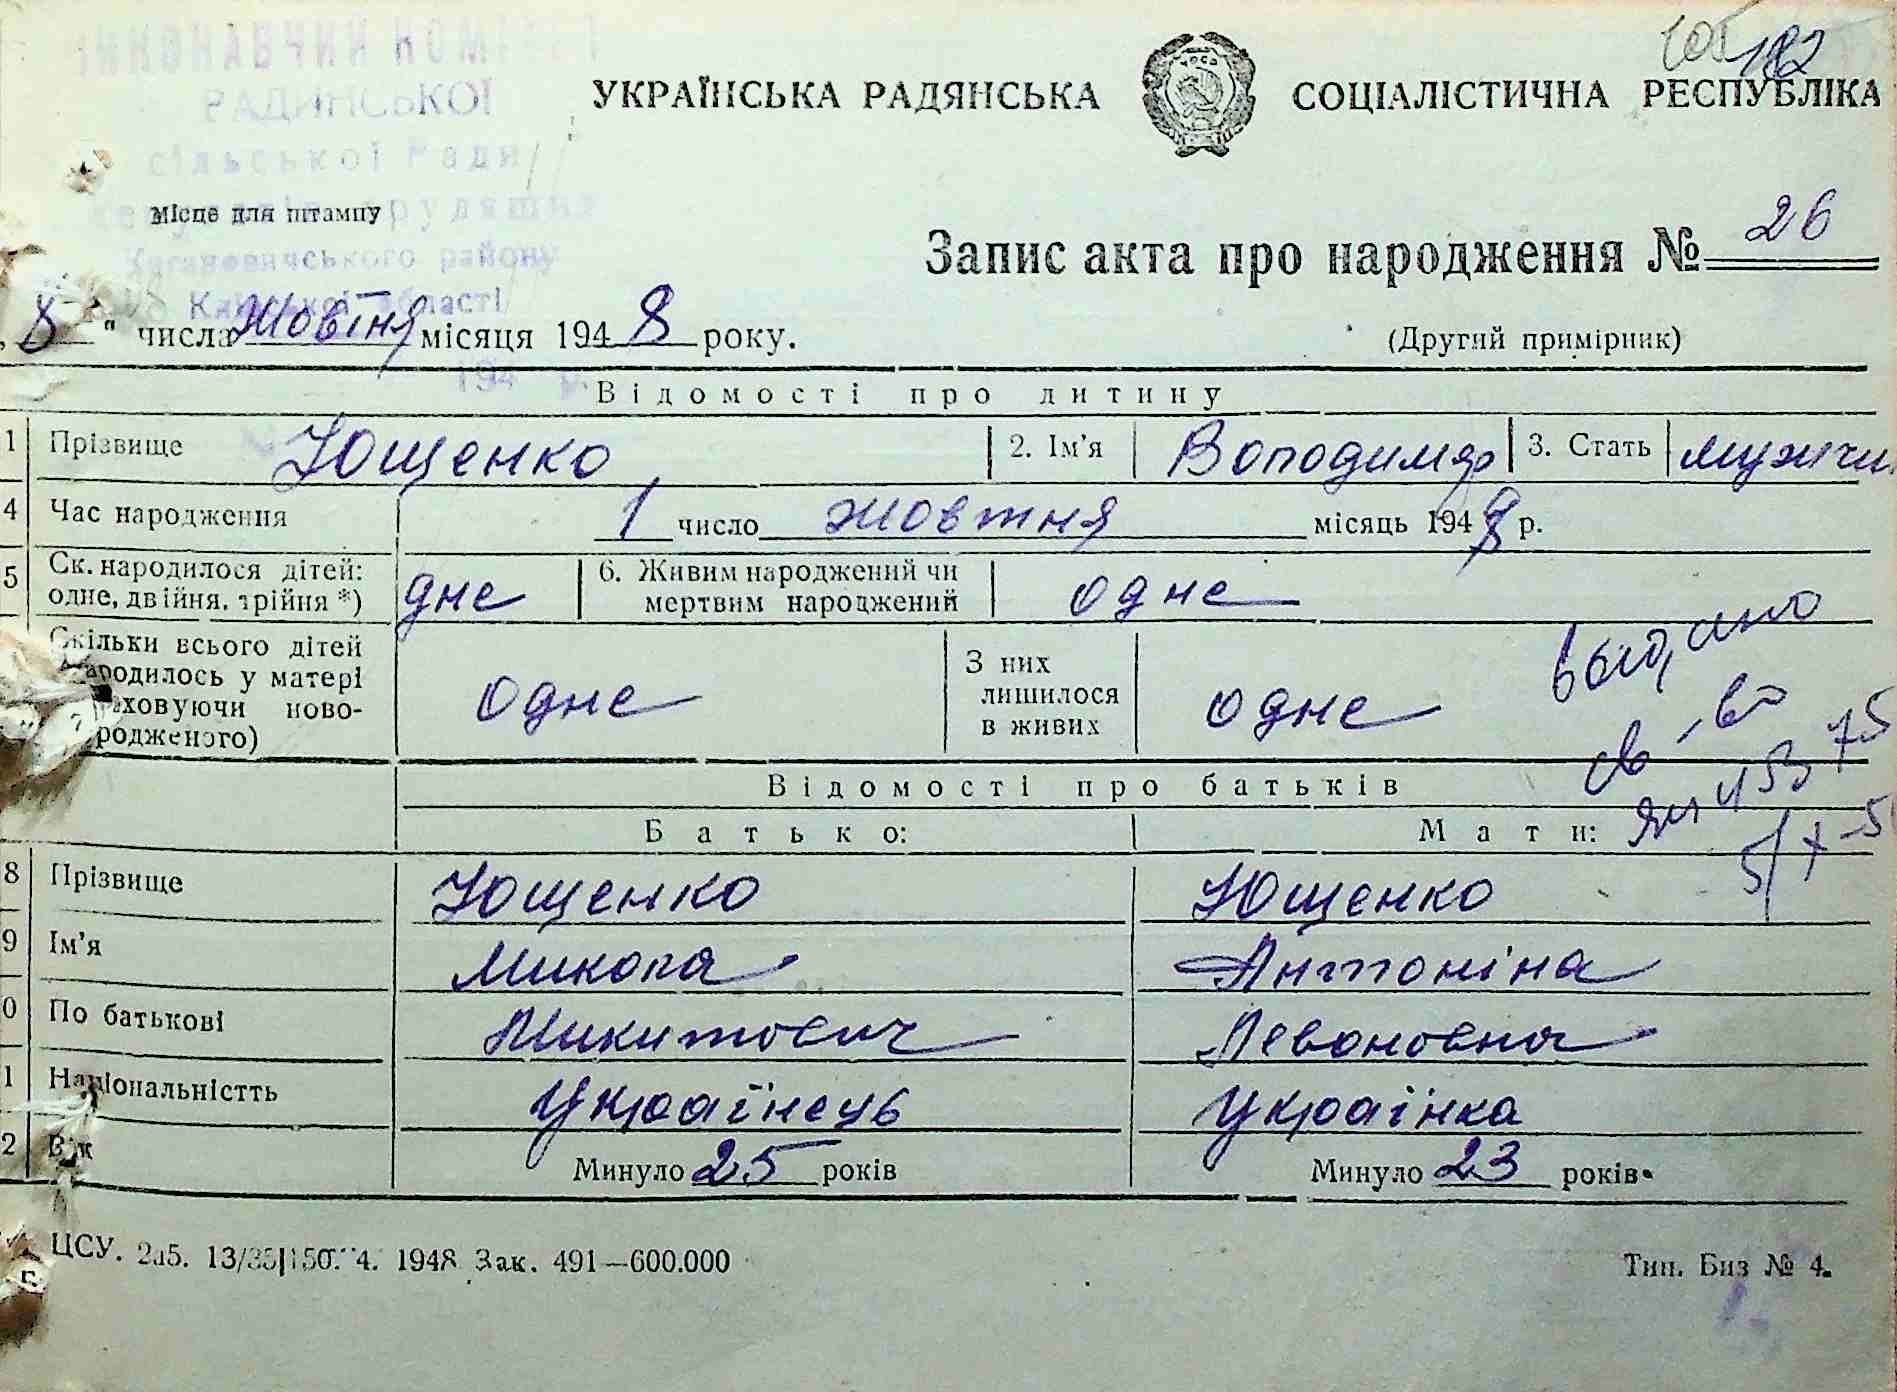 182
УКРАЇНСЬКА РАДЯНСЬКА СОЦІАЛІСТИЧНА РЕСПУБЛІКА
РАДИНСЬКОЇ
сільської Ради
Місце для штампу
Кагановичського району
Київської області
194 р.
Запис акта про народження № 26
8 " числа Жовтня місяця 1948 року.
(Другий примірник)
Відомості про дитину
1 Прізвище Ющенко 2. Ім'я Володимир 3. Стать мужчи
4 Час народження 1 число жовтня місяць 1948 р.
5 Ск. народилося дітей: одне, двійня, трійня *) дне 6. Живим народжений чи мертвим народжений одне
Скільки всього дітей народилось у матері враховуючи ново-родженого) одне З них лишилося в живих одне
выдано
св-во
75
Відомості про батьків
Батько: Мати:
8 Прізвище Ющенко Ющенко
9 Ім'я Микола Антоніна
0 По батькові Микитович Левоновна
1 Національністть Українець Українка
2 Вік Минуло 25 років Минуло 23 років
ЦСУ. 2а5. 4. 1948 Зак. 491—600.000
Тип. Биз № 4.